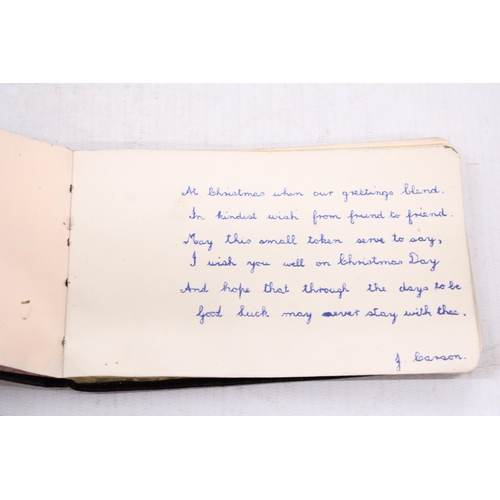 At Christmas when our greetings blend.
In kindest wish from friend to friend.
May this small token serve to say,
I wish you well on Christmas Day
And hope that through the days to be
Good Luck may ever stay with thee.
J. Carson.